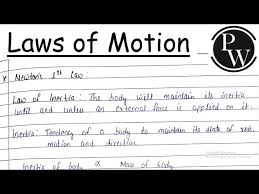 Laws of Motion
PW
* Newton's 1st Law:
Law of Inertia: The body will maintain its inertia
until and unless an external force is applied on it.
Inertia: Tendency of a body to maintain its state of rest,
motion and direction.
Inertia of body ∝ Mass of body